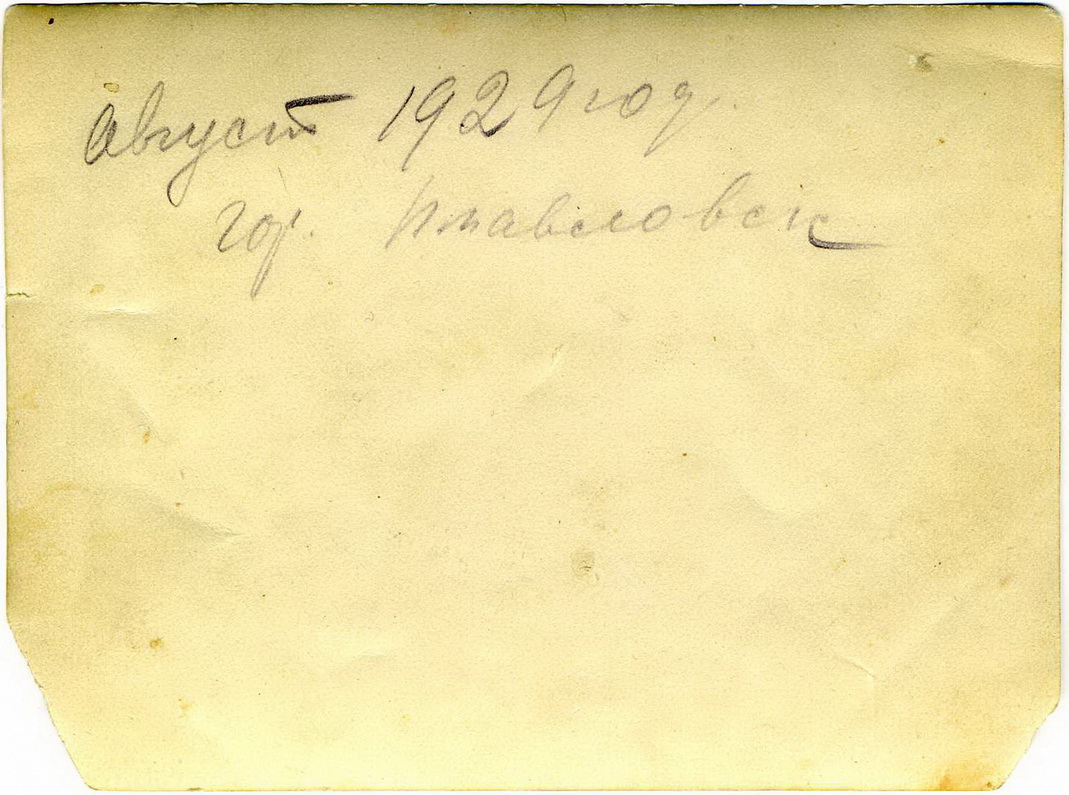 Август 1929 год.
гор. Ппавловск